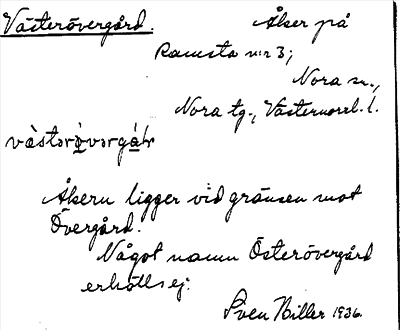 Västerövergård. Åker på
Ramsta n:r 3;
Nora sn.,
Nora tg., Västernorrl. l.
Åkern ligger vid gränsen mot
Övergård.
Något namn Österövergård
erhölls ej.
Sven Biller 1936.